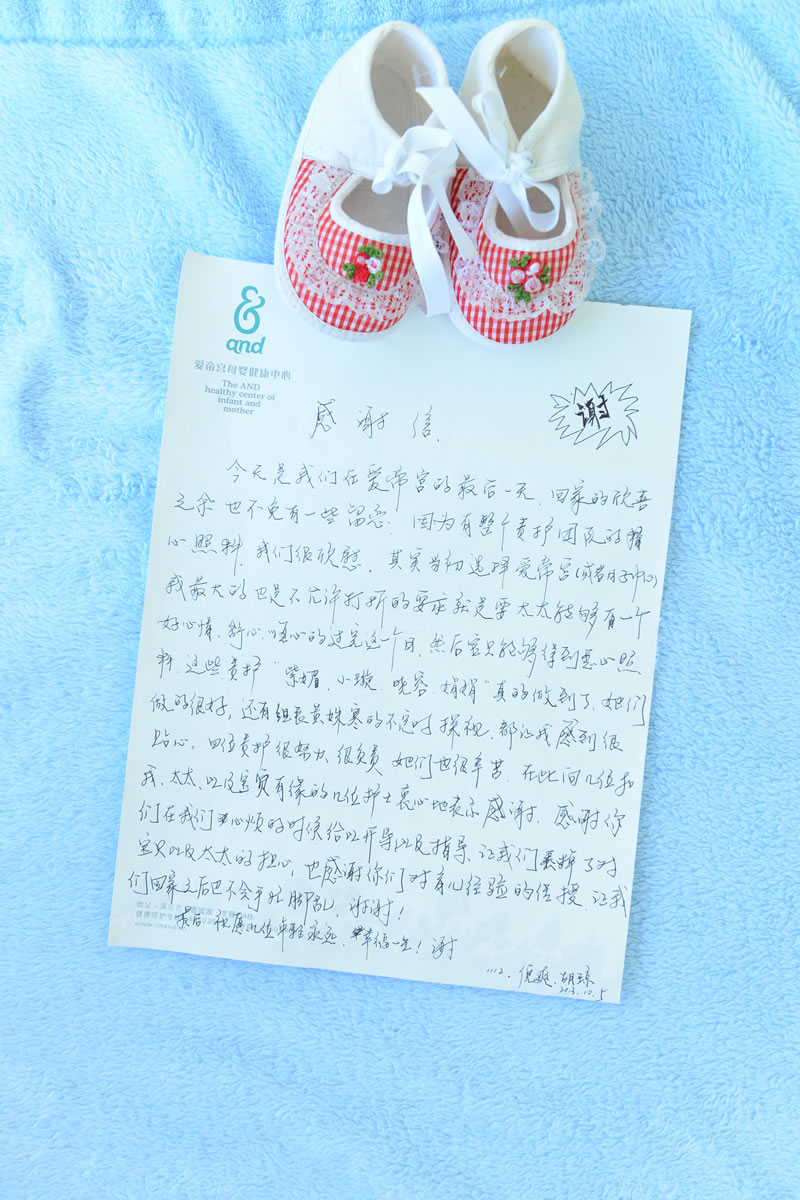 &
and
爱帝宫母婴健康中心
The AND
healthy center of
infant and
mother
谢
感谢信
今天是我们在爱帝宫的最后一天、回家的欣喜
之余也不免有一些留恋。因为有整个责护团队的精
心照料,我们很欣慰。其实当初选择爱帝宫(或者月子中心)
我最大的也是不允许打折的要求就是要太太能够有一个
好心情、舒心、顺心的过完这一个月,然后宝贝能够得到悉心照
料、这些责护“紫媚、小璇、晓容、娟娟”真的做到了、她们
做的很好,还有组长黄姝寒的不定时探视、都让我感到很
贴心,四位责护很努力、很负责 她们也很辛苦、在此向几位和
我、太太、以及宝贝有缘的几位护士衷心地表示感谢、感谢你
们在我们心烦的时候给以开导以及指导、让我们丢掉了对
宝贝以及太太的担心,也感谢你们对育儿经验的传授 让我
们回家之后也不会手忙脚乱,谢谢!
最后 祝愿几位年轻永远、幸福一生!谢
地址:深圳市
www.imand
倪爽、胡琼
2013.10.5